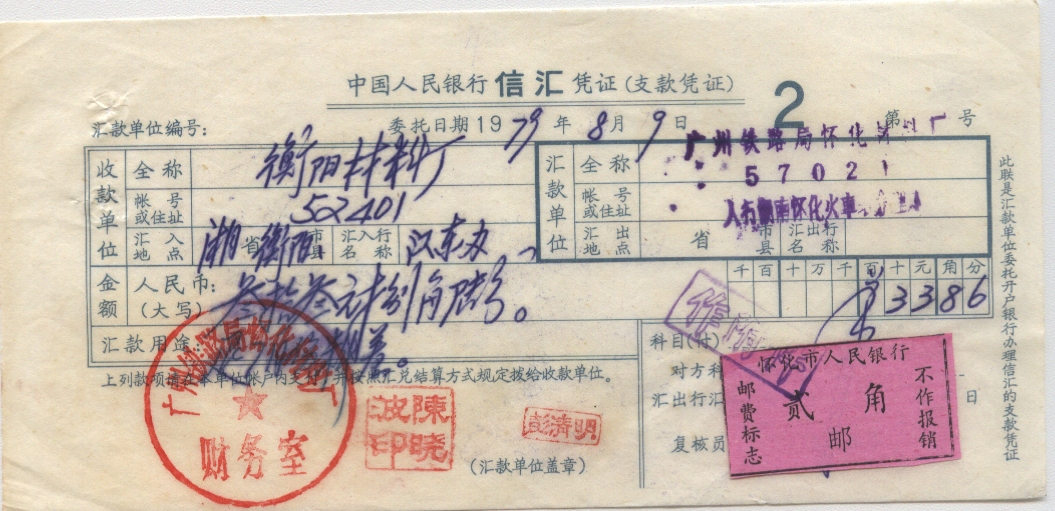 中国人民银行 信汇 凭证(支款凭证) 2
汇款单位编号: 委托日期1979年8月9日 第 号
收款单位 全称 衡阳材料厂
帐号或住址 502401
汇入地点 湖 省 衡阳 市县 汇入行名称 江东办
汇款单位 全称 广州铁路局怀化
帐号或住址 57021
汇出地点 省 市县 汇出行名称
人行湖南怀化火车
金额 人民币:(大写) 叁拾叁元捌角陆分。
千百十万千百十元角分
¥3386
汇款用途:
上列款项请在本单位帐户内支付,并按照汇兑结算方式规定拨给收款单位。
(汇款单位盖章)
科目(付)
对方科
汇出行汇 日
复核员
此联是汇款单位委托开户银行办理信汇的支款凭证
广州铁路局怀化
财务室
陳晓波印
彭清明
怀化市人民银行
邮费标志
贰角
邮
不作报销